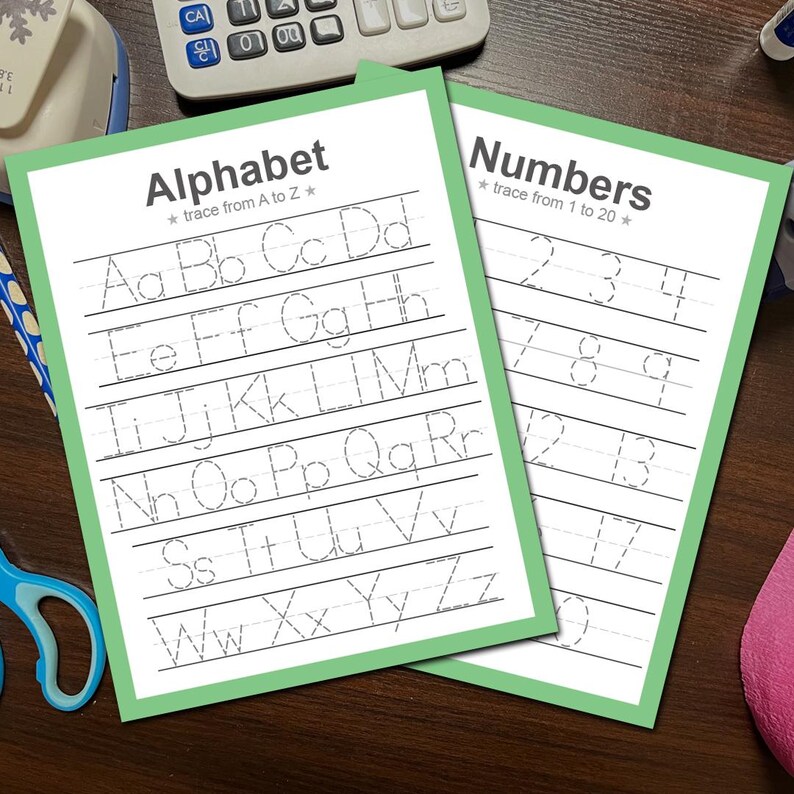 CA
CI
C
0
00
Alphabet
★ trace from A to Z ★
Aa Bb Cc Dd
Ee Ff Gg Hh
Ii Jj Kk Ll Mm
Nn Oo Pp Qq Rr
Ss Tt Uu Vv
Ww Xx Yy Zz
Numbers
★ trace from 1 to 20 ★
2 3 4
7 8 9
12 13
17
0